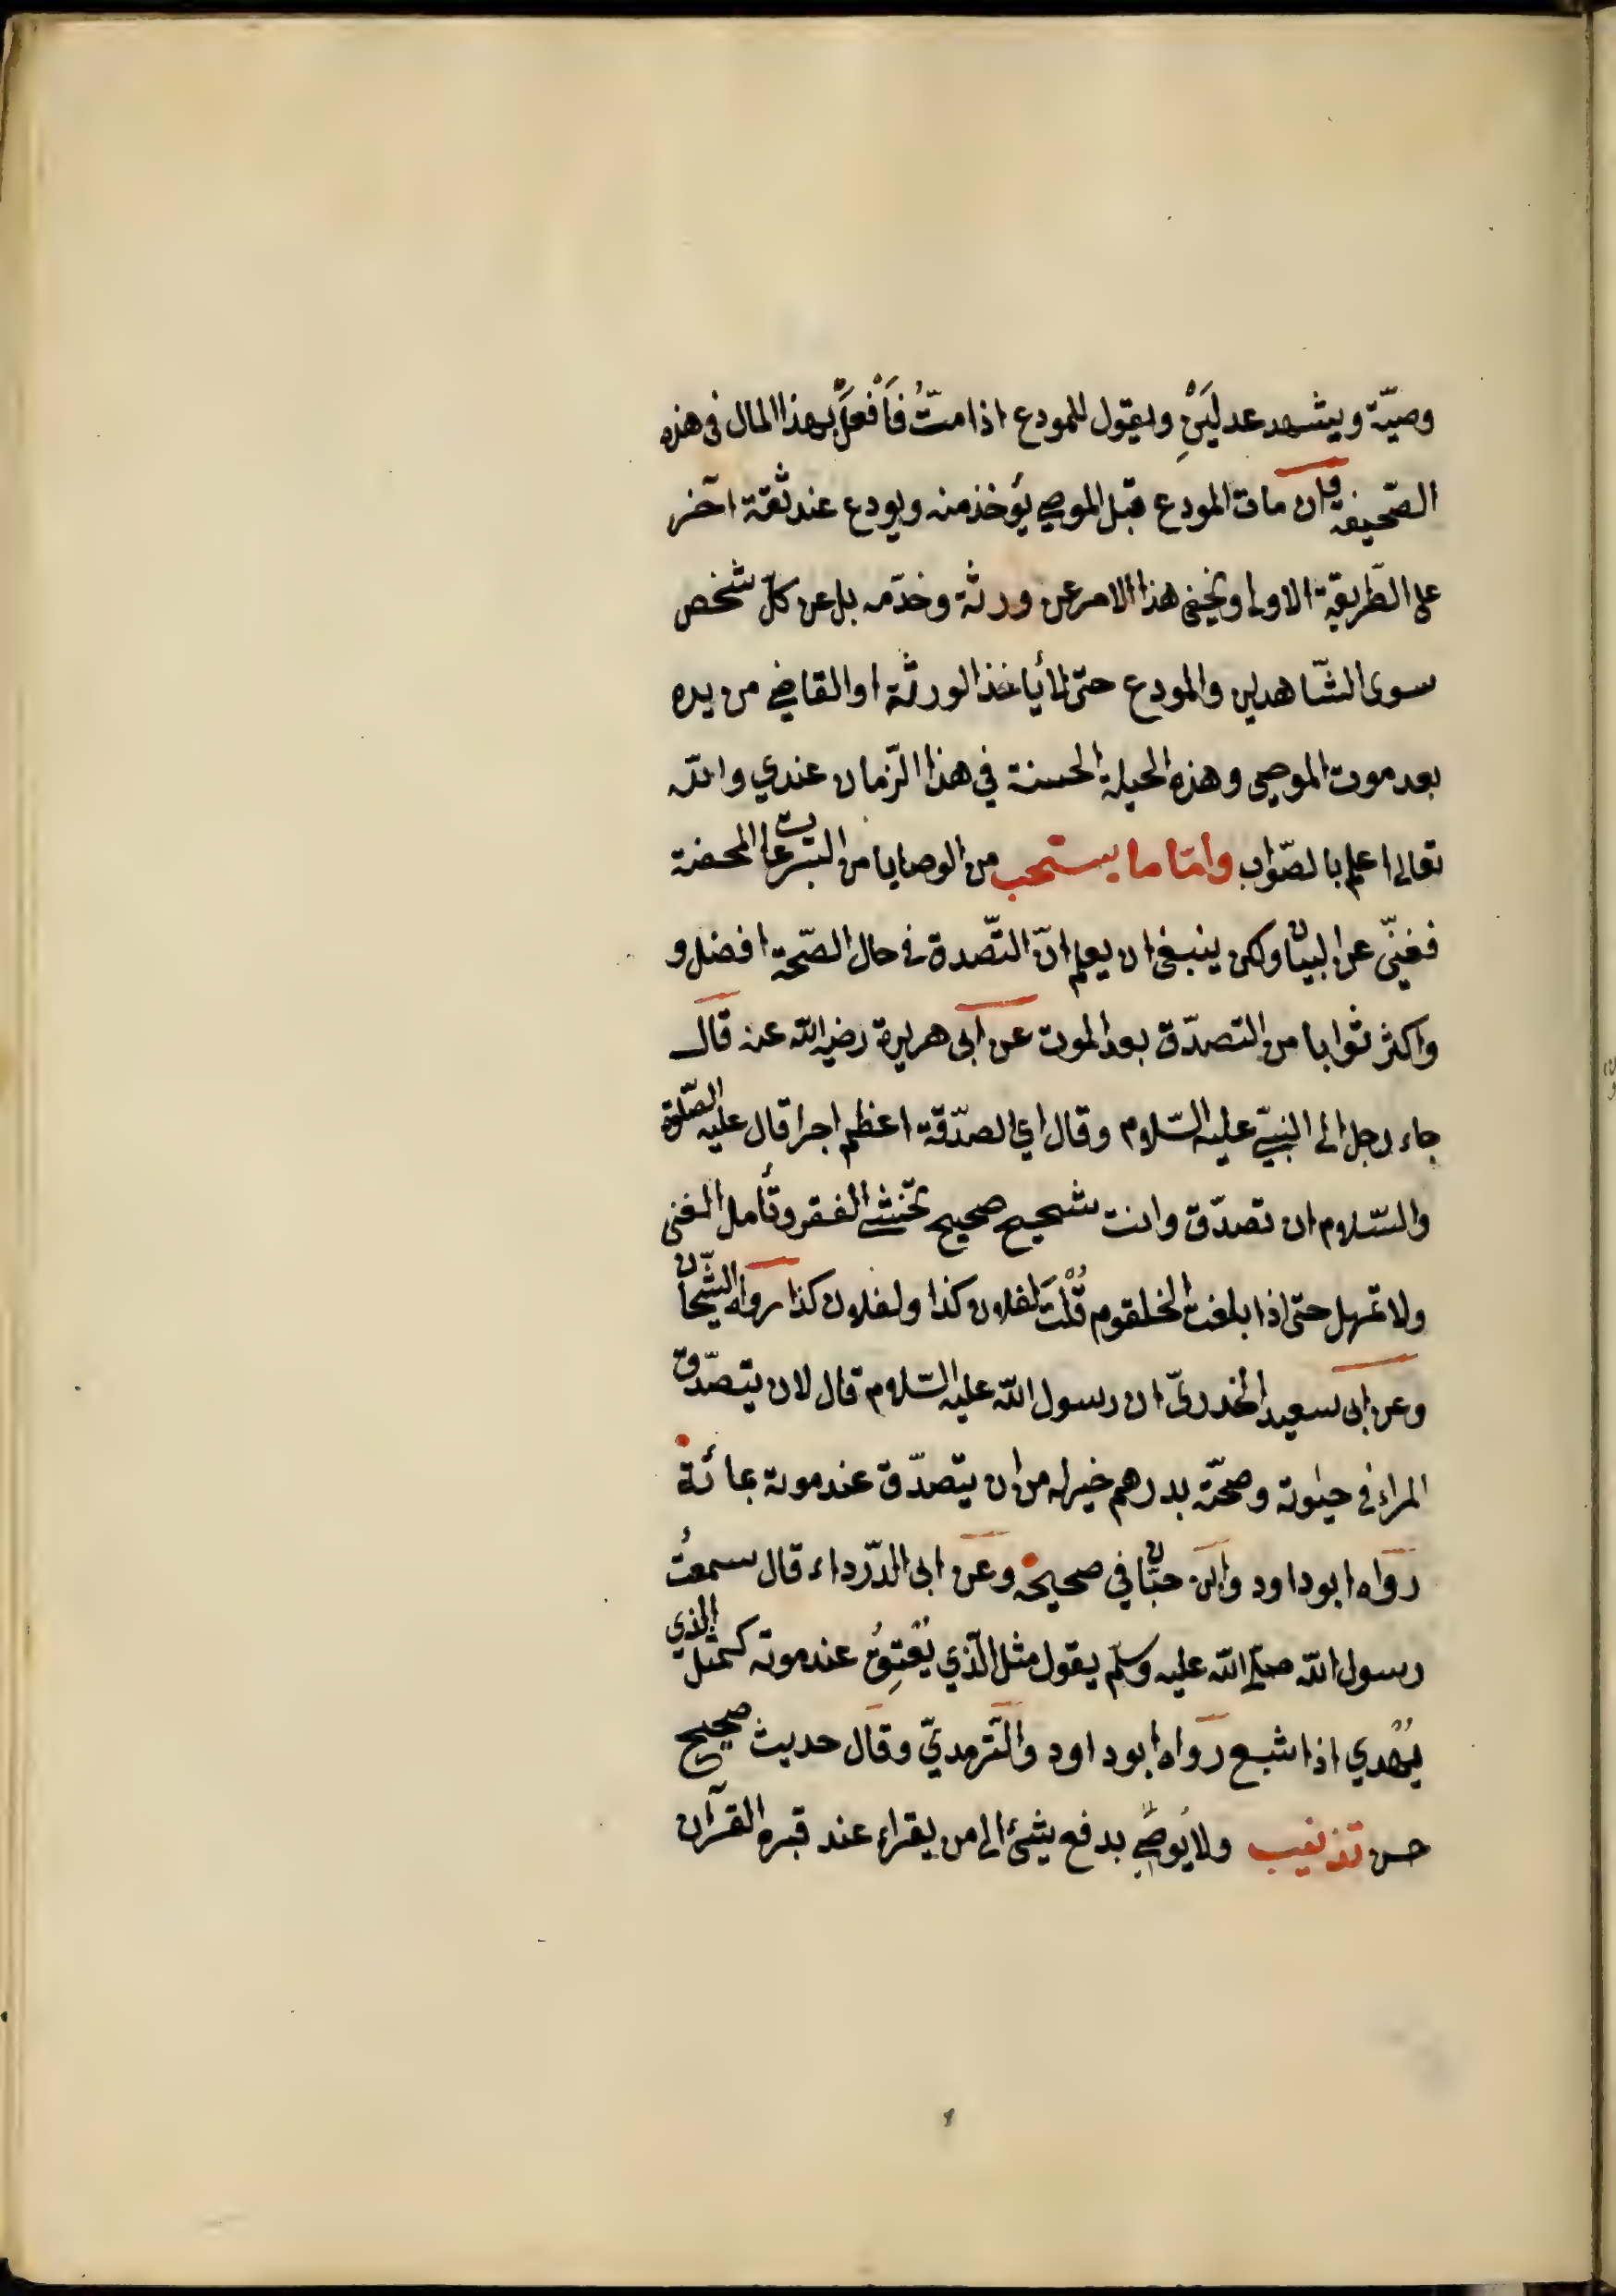 وصيّة ويشهد عدليَْنِ ويقول للمودع اذا متُّ فَاْفعَلْ بهذا المال فى هذه
الصّحيفة فان مات المودع قبل الموصي يؤخذ منه ويودع عند ثقة آخر
على الطّريقة الاولى ويخفى هذا الامر عن ورثة وخدّمه بل عن كلّ شخص
سوى الشّاهدين والمودع حتى لا يأخذ الورثة او القاضي من يده
بعد موت الموصى وهذه الحيلة الحسنة في هذا الزّمان عندي والله
تعالى اعلم بالصّواب وامّا ما يستحب من الوصايا من التبرّعات المحضة
فغنيّ عن البيان ولكن ينبغى ان يعلم انّ التّصدق فى حال الصّحة افضل و
واكثر ثوابا من التصدّق بعد الموت عن ابى هريرة رضى الله عنه قال
جاء رجل الى النبيّ عليه السّلام وقال اي الصدّقة اعظم اجرا قال عليه الصّلوة
والسّلام ان تصدّق وانت شحيح صحيح تخشى الفقر وتأمل الغنى
ولا تمهل حتى اذا بلغت الخلقوم قُلْتَ لفلان كذا ولفلان كذا رواه الشّيخان
وعن ابى سعيد الخدريّ ان رسول الله عليه السّلام قال لان يتصدّق
المراء فى حيٰوته وصحّته بدرهم خير له من ان يتصدّق عند موته بمائة
رواه ابو داود وابن حبّان في صحيحه وعن ابى الدّرداء قال سمعتُ
رسول الله صلى الله عليه وسلّم يقول مثل الّذي يُعْتِقُ عند موته كمثل الذي
يُهْدي اذا شبع رواه ابو داود والتّرمذيّ وقال حديث صحيح
حسن تذنيب ولا يُوصِي بدفع شئ الى من يقراء عند قبره القرآن